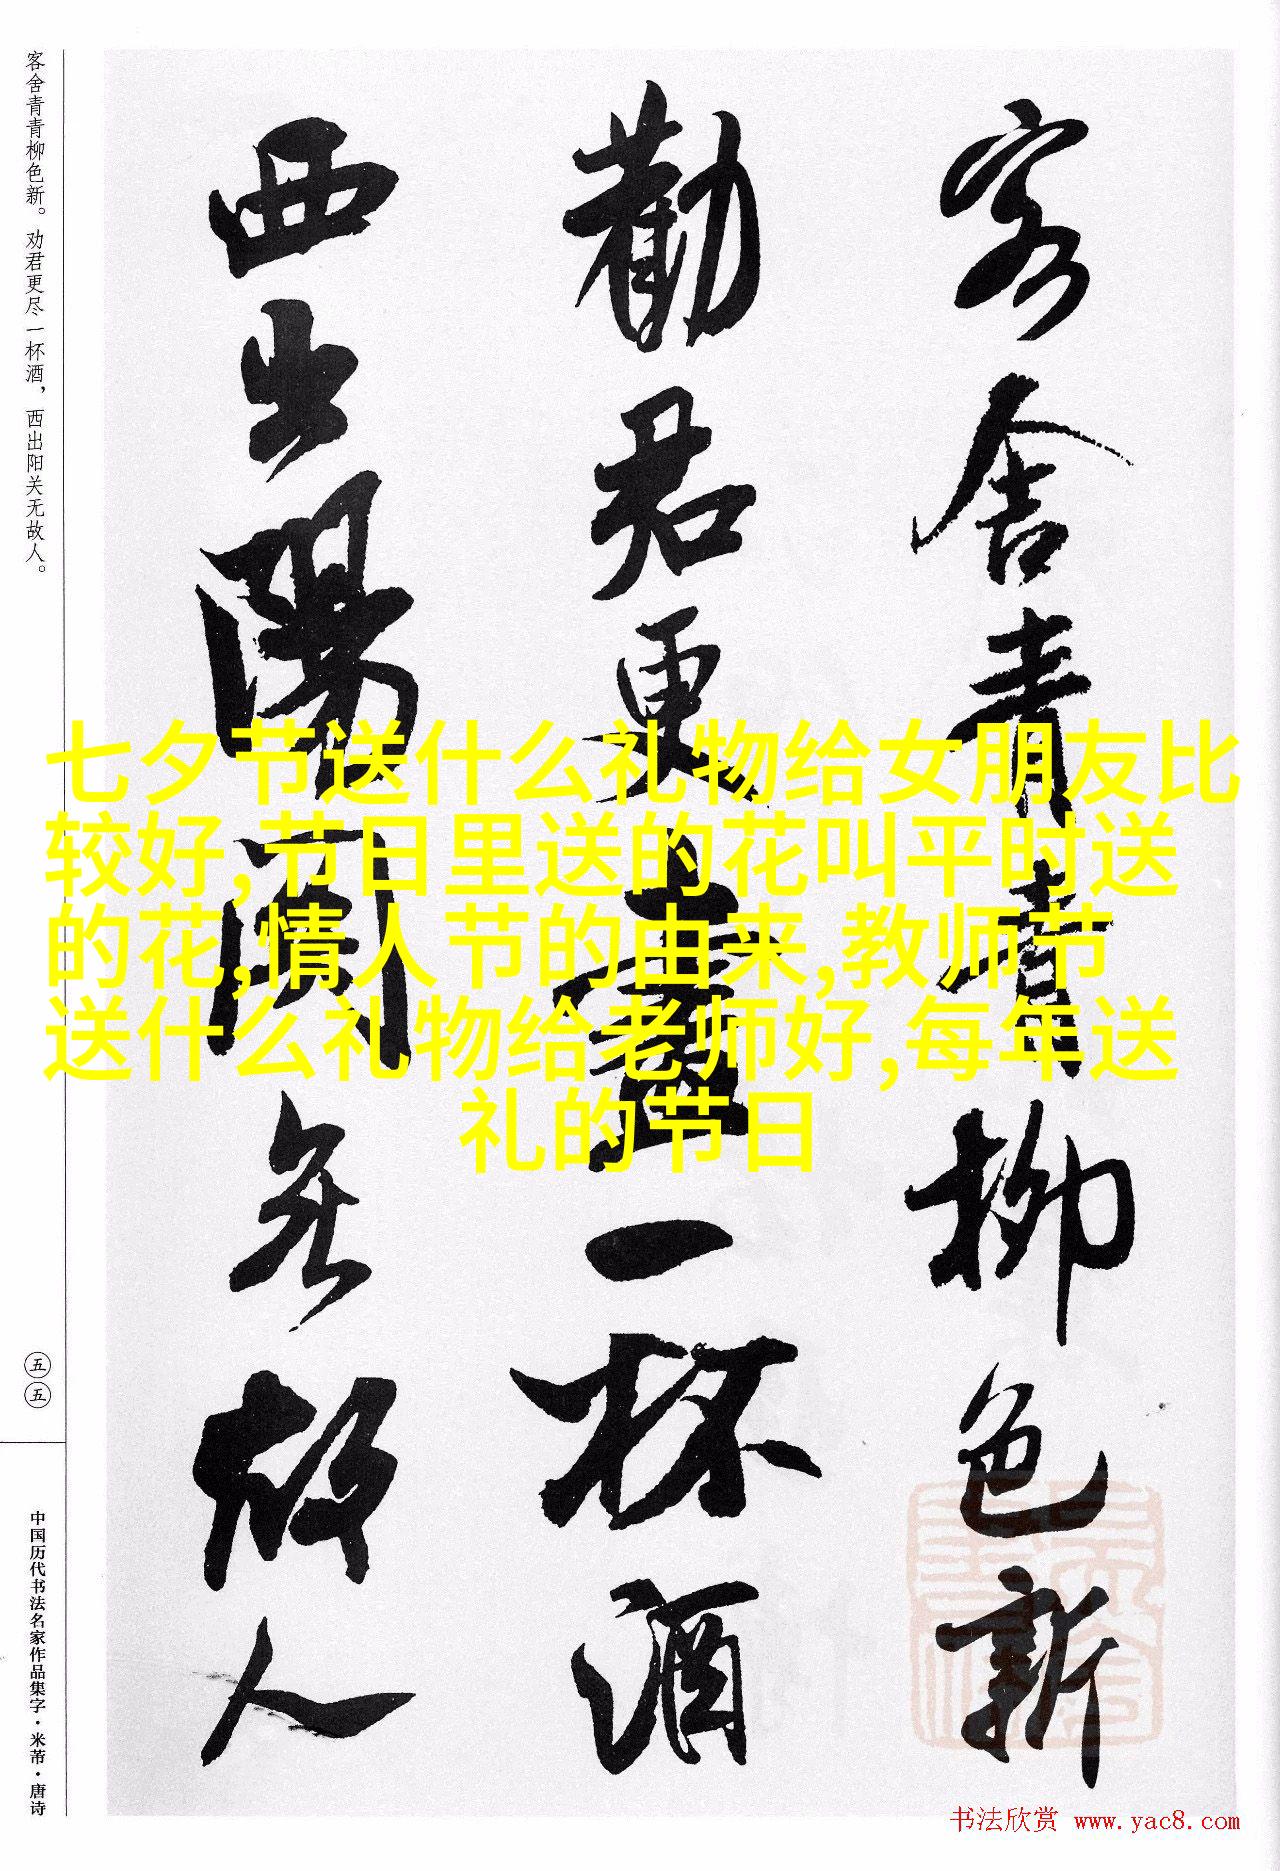 客舍青青柳色新
勸君更盡一杯酒
西出陽關無故人
客舍青青柳色新。劝君更尽一杯酒，西出阳关无故人。
五五
中国历代书法名家作品集字·米芾·唐诗
七夕节送什么礼物给女朋友比
较好,节日里送的花叫平时送
的花,情人节的由来,教师节
送什么礼物给老师好,每年送
礼的节日
书法欣赏 www.yac8.com